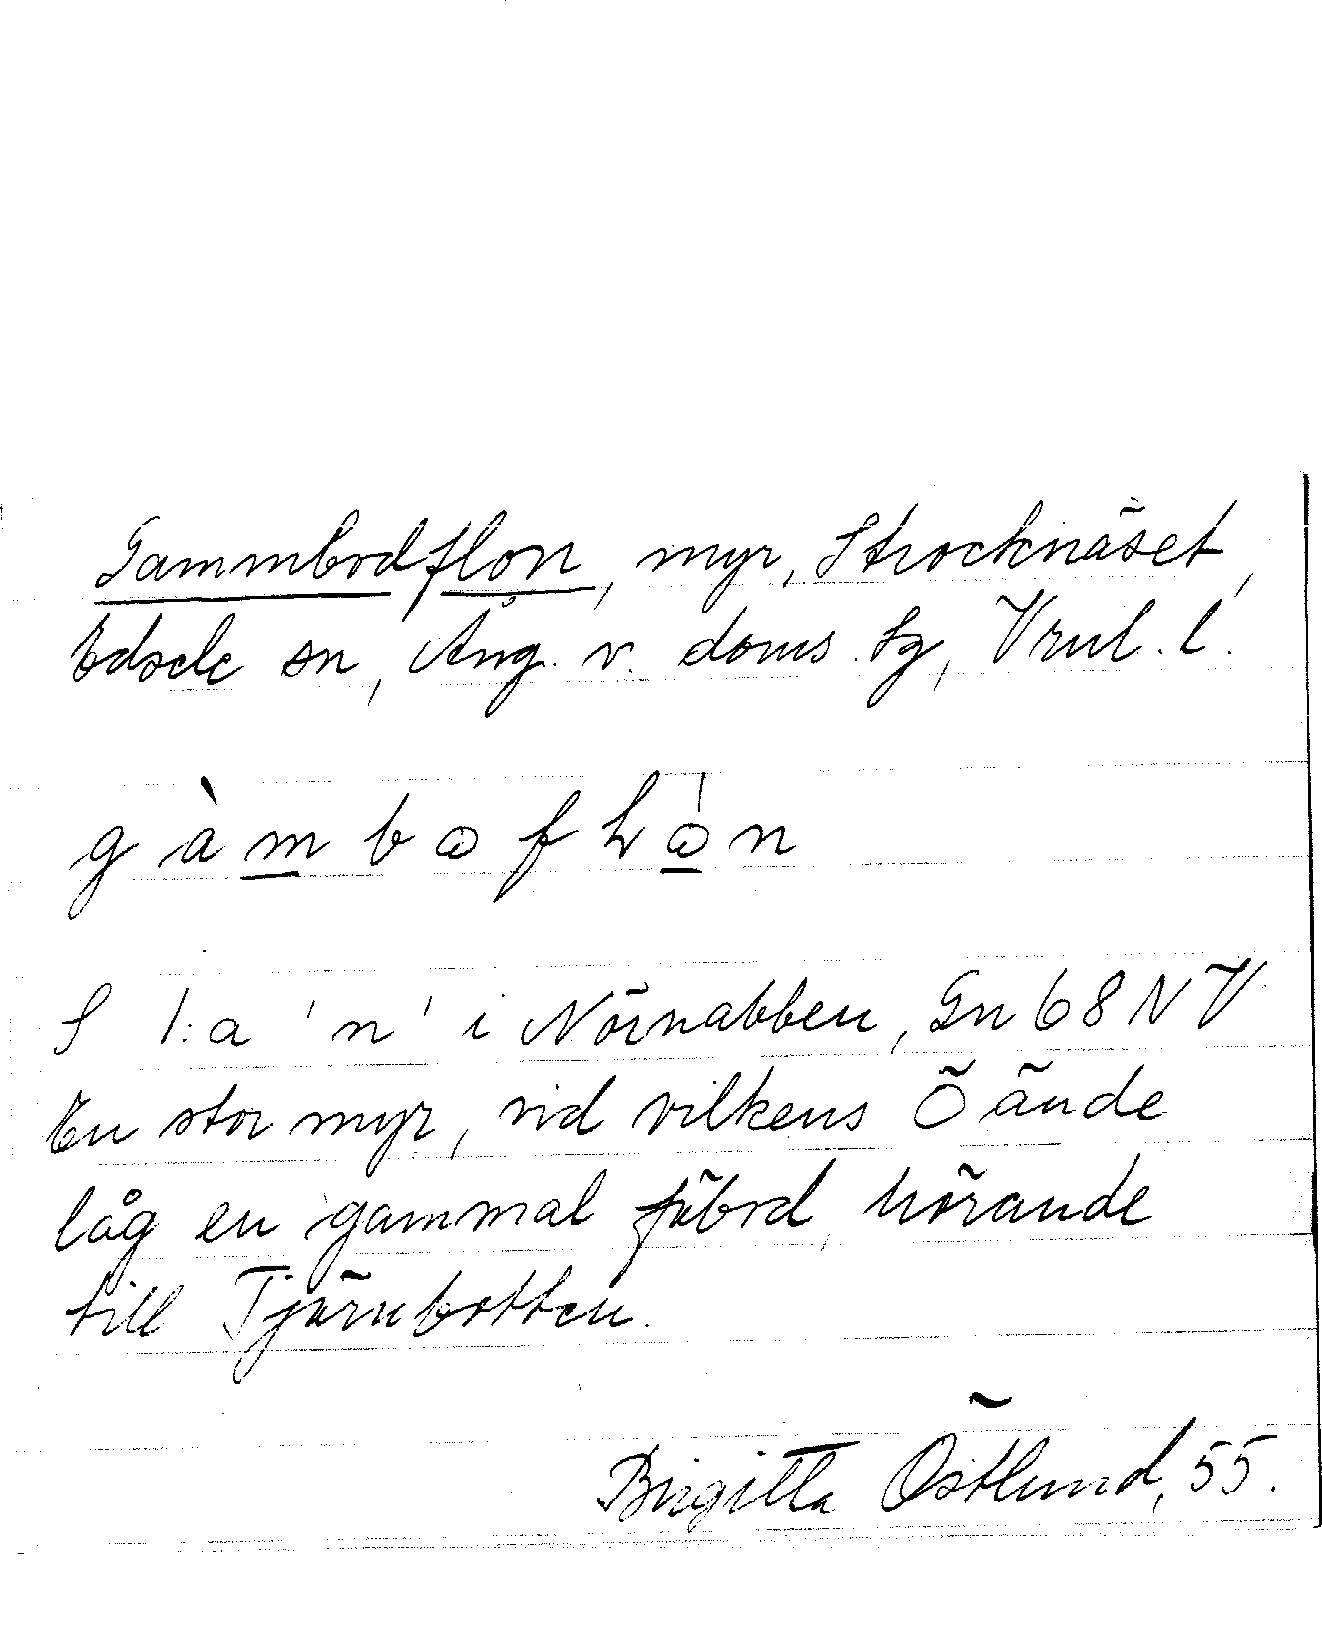 Gammbodflon, myr, Strocknäset,
Edsele sn, Ång. v. doms. sg, Vrnl. l.
S 1:a 'n' i Nörnabben, Gn 68 NV
En stor myr, vid vilkens Ö ände
låg en gammal fäbod, hörande
till Tjärnbotten.
Birgitta Östlund, 55.